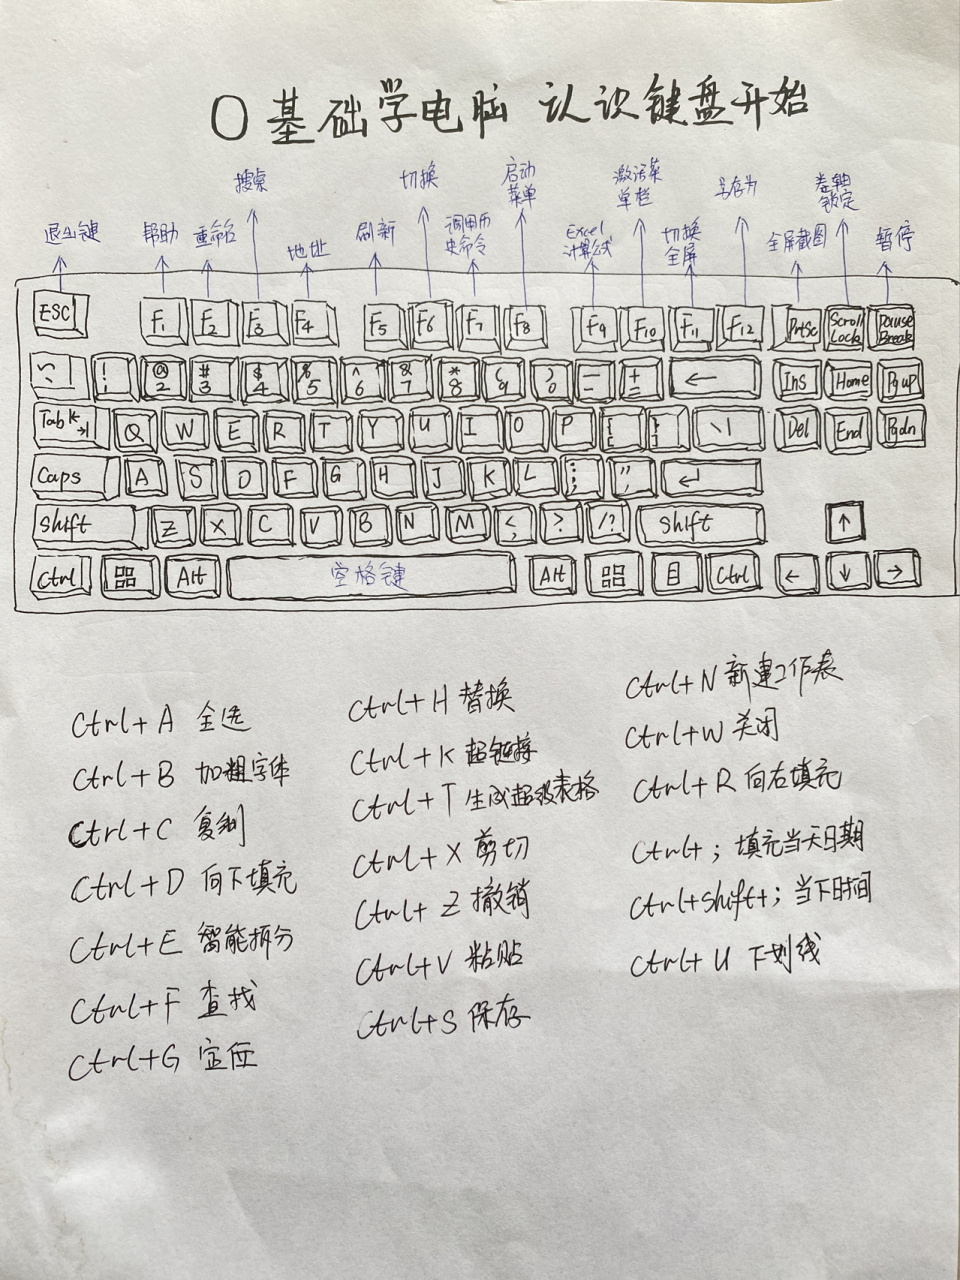 0基础学电脑 认识键盘开始
搜索 切换 启动菜单 激活菜单栏 另存为 卷轴锁定
退出键 帮助 重命名 地址 刷新 调用历史命令 Excel计算公式 切换全屏 全屏截图 暂停
ESC F1 F2 F3 F4 F5 F6 F7 F8 F9 F10 F11 F12 PrtSc Scroll Lock Pause Break
@ 2 # 3 $ 4 % 5 ^ 6 & 7 * 8 ( 9 ) 0 - + = ← Ins Home Pgup
Tab Q W E R T Y U I O P { [ } ] \ | Del End Pgdn
Caps A S D F G H J K L ; : " , ↵
Shift Z X C V B N M < , > . / ? Shift ↑
Ctrl Alt 空格键 Alt Ctrl ← ↓ →
Ctrl+A 全选
Ctrl+B 加粗字体
Ctrl+C 复制
Ctrl+D 向下填充
Ctrl+E 智能拆分
Ctrl+F 查找
Ctrl+G 定位
Ctrl+H 替换
Ctrl+K 超链接
Ctrl+T 生成超级表格
Ctrl+X 剪切
Ctrl+Z 撤销
Ctrl+V 粘贴
Ctrl+S 保存
Ctrl+N 新建工作表
Ctrl+W 关闭
Ctrl+R 向右填充
Ctrl+; 填充当天日期
Ctrl+Shift+; 当下时间
Ctrl+U 下划线